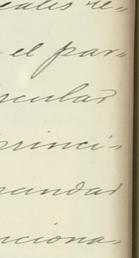 eales re-
el par-
scular
princi-
mandas
nciona-